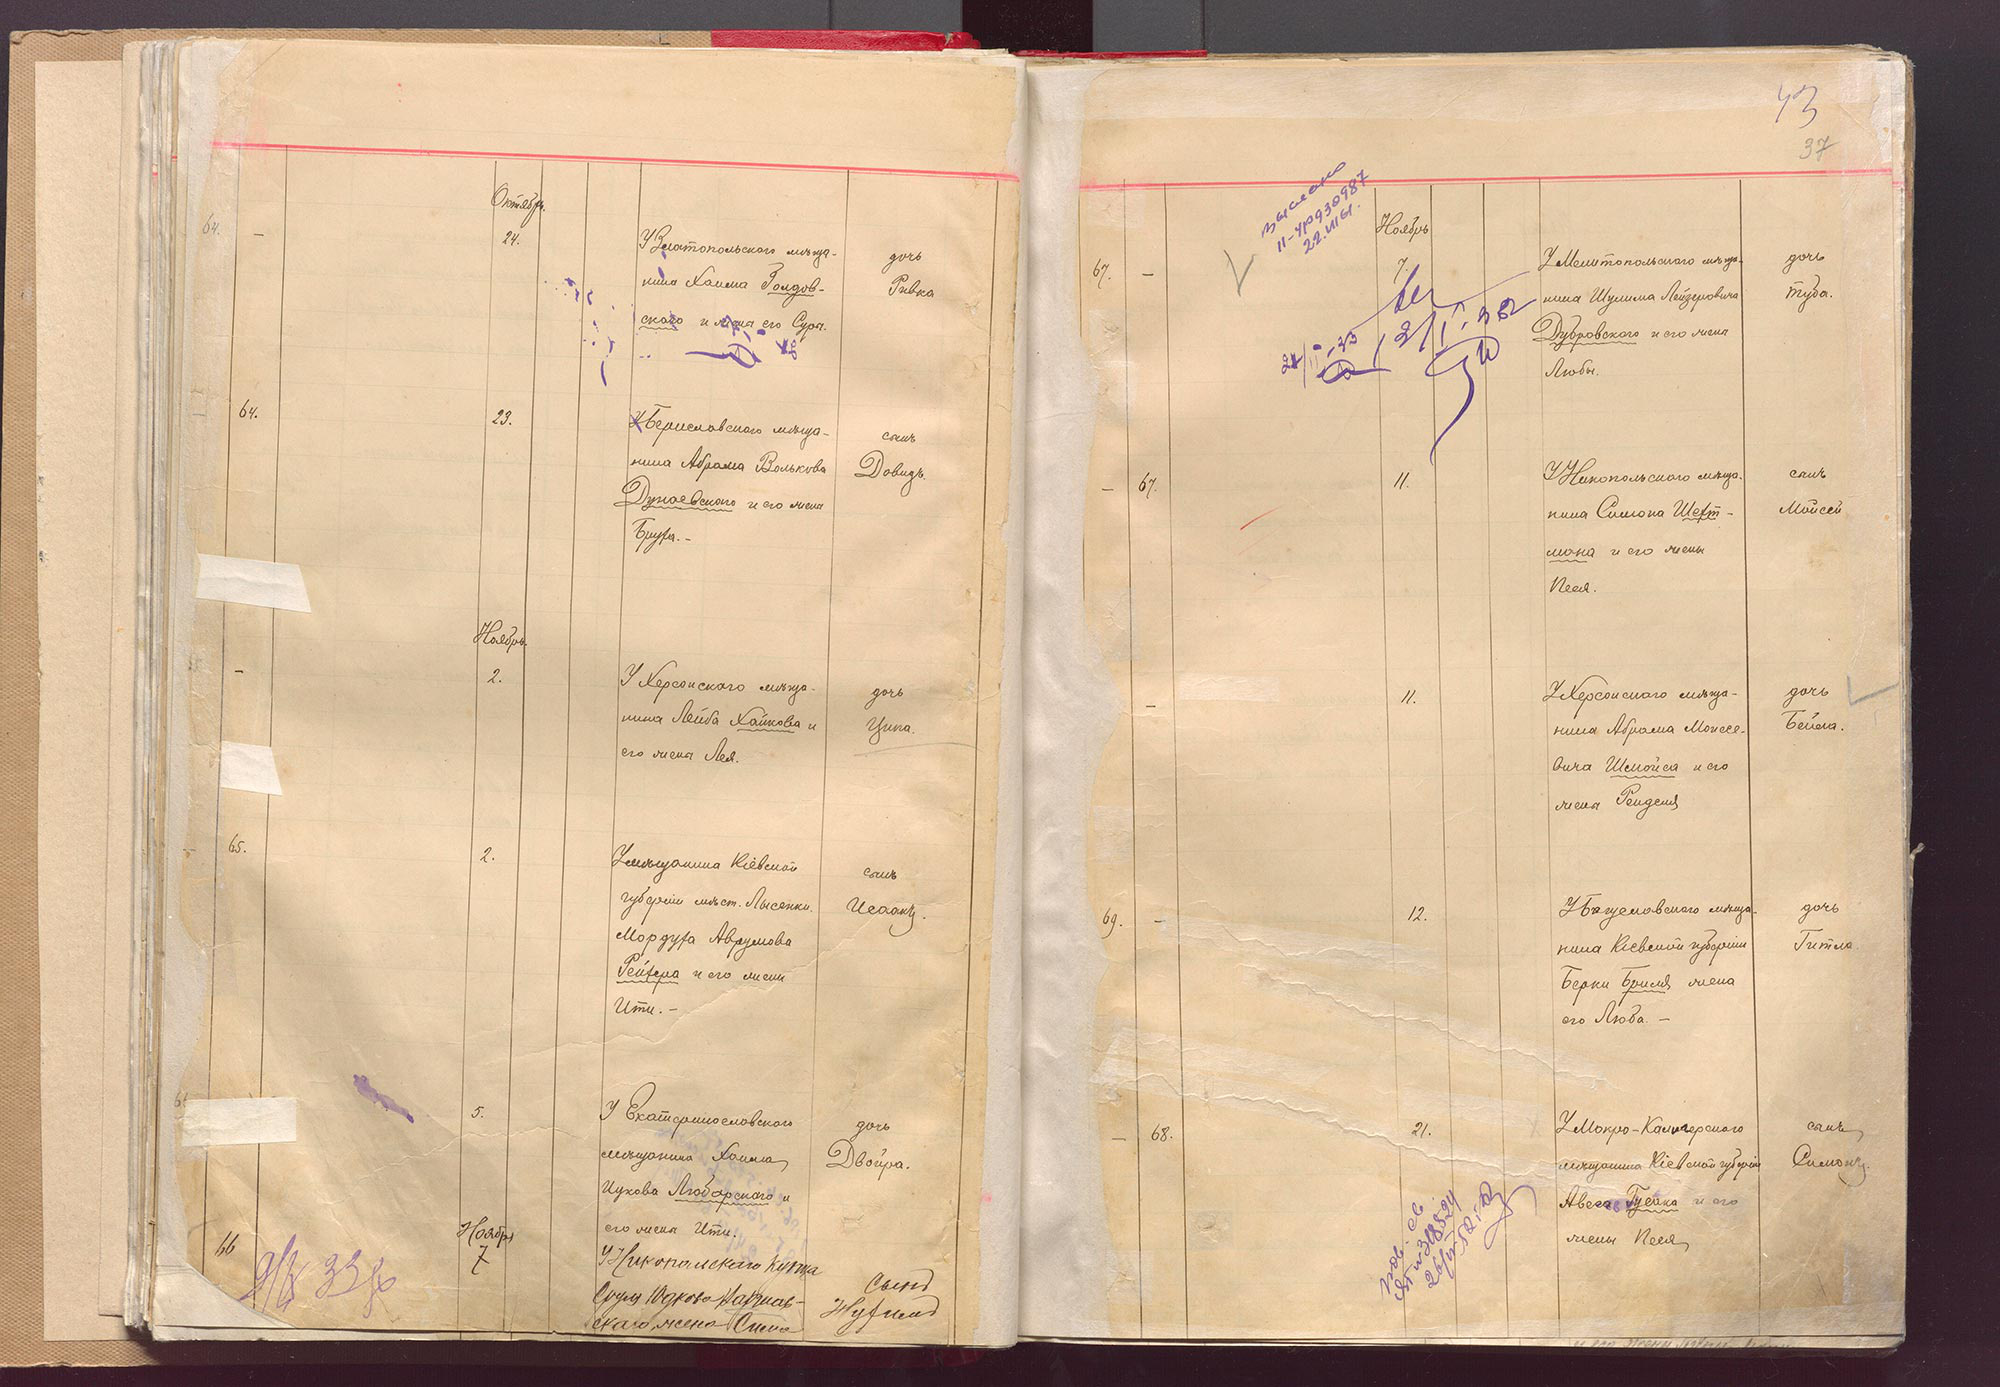 Октябрь.
64.
24.
У Златопольского мѣща-
нина Хаима Голдов-
ского и жена его Сура.
дочь
Ривка
64.
23.
У Бериславского мѣща-
нина Абрама Волькова
Дунаевского и его жена
Бруха. -
сынъ
Довидъ.
Ноябрь.
2.
У Херсонского мѣща-
нина Лейба Хайкова и
его жена Лея.
дочь
Ципа.
65.
2.
У мѣщанина Кіевской
губерніи мѣст. Лысенки
Мордуха Аврумова
Рейфера и его жены
Ити. -
сынъ
Исаакъ.
5.
У Екатеринославского
мѣщанина Хаима
Ицкова Любарского и
его жена Ити.
дочь
Двойра.
66
Ноябрь
7
У Никопольского купца
Сруля Юдкова
ского жена Сима
сынъ
43
37
выслано
II-УР 930987
22.VII 61.
67.
Ноябрь
7.
У Мелитопольского мѣща-
нина Шулима Лейзеровича
Дубровского и его жена
Любы.
дочь
Туба.
67.
11.
У Никопольского мѣща-
нина Симона Шехт-
мана и его жены
Песя.
сынъ
Мойсей
11.
У Херсонского мѣща-
нина Абрама Моисее-
вича Шмойся и его
жена Рейделя
дочь
Бейла.
69.
12.
У Богуславского мѣща-
нина Кіевской губерніи
Берки Бриля жена
его Люба. -
дочь
Гитля.
68.
21.
У Мокро-Калигерского
мѣщанина Кіевской губерніи
Гусака и его
жены Песя
сынъ
Симонъ.